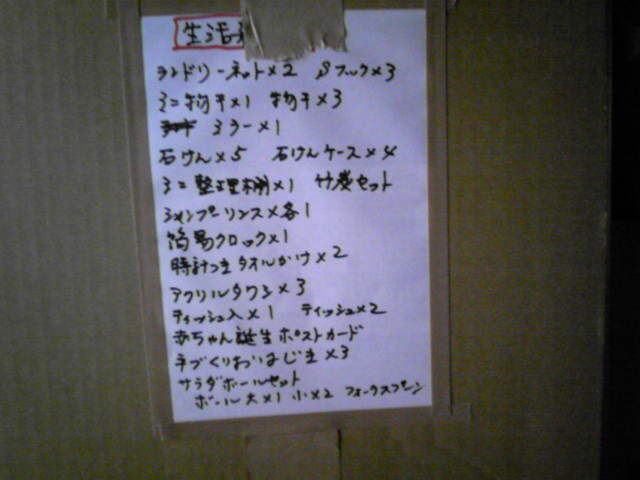 生活
ランドリーネット×2 Sフック×3
ミニ物干×1 物干×3
ミラー×1
石けん×5 石けんケース×4
ミニ整理棚×1 竹炭セット
シャンプーリンス×各1
簡易クロック×1
時計つきタオルかけ×2
アクリルタワシ×3
ティッシュ入×1 ティッシュ×2
赤ちゃん誕生ポストカード
手づくりおはじき×3
サラダボールセット
ボール大×1 小×2 フォークスプーン